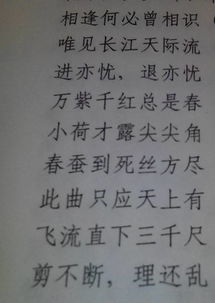 相逢何必曾相识
唯见长江天际流
进亦忧，退亦忧
万紫千红总是春
小荷才露尖尖角
春蚕到死丝方尽
此曲只应天上有
飞流直下三千尺
剪不断，理还乱